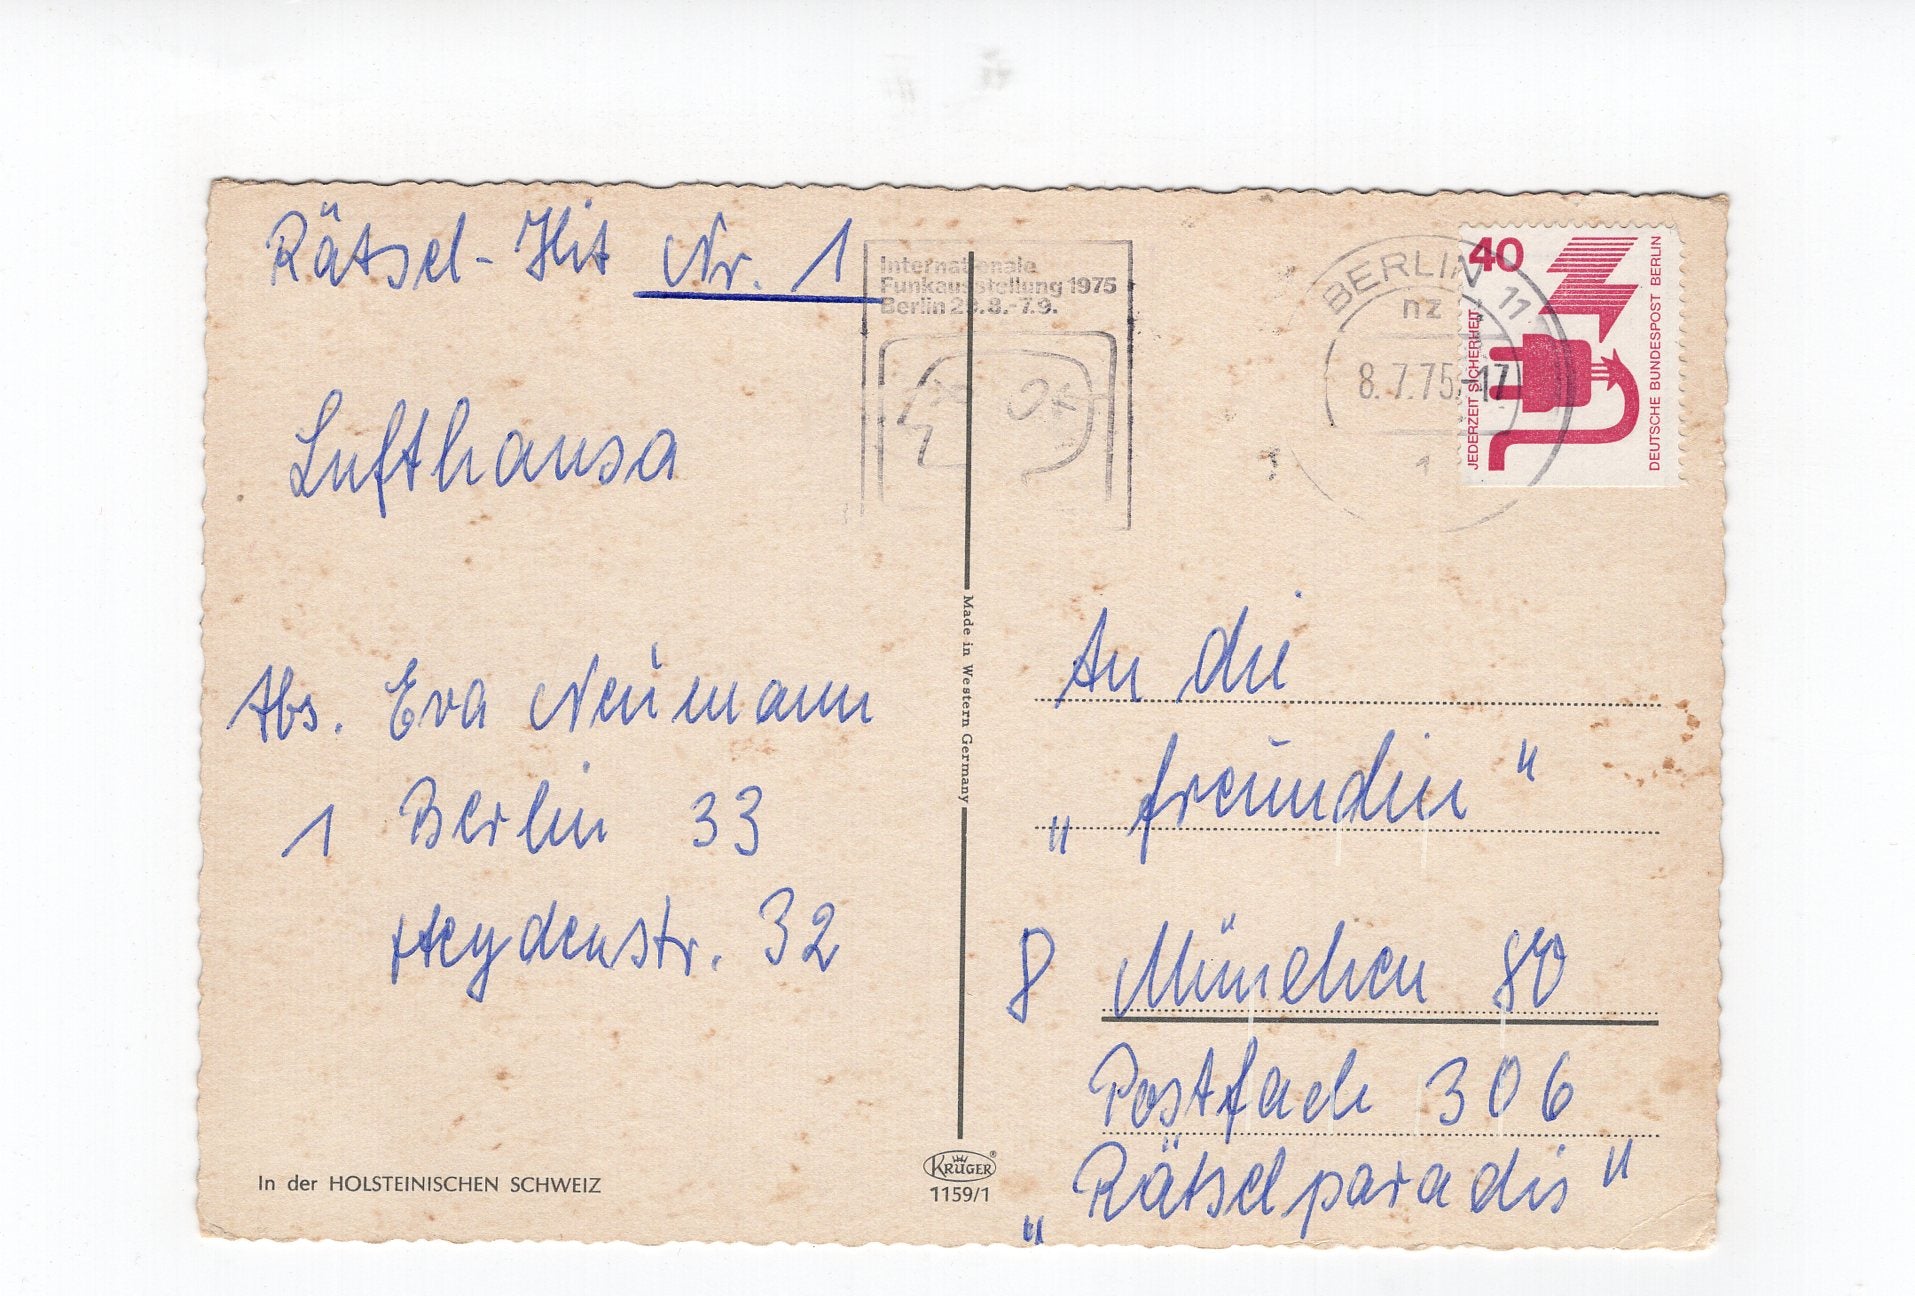 Rätsel-Hit Nr. 1
Lufthansa
Abs. Eva Neumann
1 Berlin 33
Heydenstr. 32
In der HOLSTEINISCHEN SCHWEIZ
Internationale
Funkausstellung 1975
Berlin 29.8.-7.9.
Made in Western Germany
KRÜGER®
1159/1
BERLIN 11
nz
8.7.75-17
1
40
JEDERZEIT SICHERHEIT
DEUTSCHE BUNDESPOST BERLIN
An die
„freundin“
8 München 80
Postfach 306
„Rätselparadis“